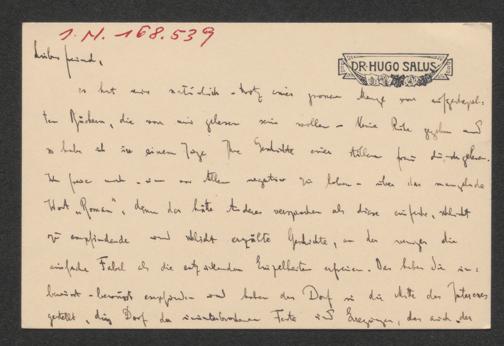 I.N. 168.539
Lieber Freund,
DR. HUGO SALUS
es hat mir natürlich - trotz einer grossen Menge von aufgestapel-
ten Büchern, die von mir gelesen sein wollen - keine Ruhe gegeben und
so habe ich in einem Tage Ihre Geschichte einer stillen Frau durchgelesen.
Ich freue mich - um vor Allem negativ zu loben - über das mangelnde
Wort „Roman", denn das hätte Anderes versprochen als diese einfache, schlicht
zu empfindende und schlicht erzählte Geschichte, an der weniger die
einfache Fabel als die entzückenden Einzelheiten erfreuen. Das haben Sie un-
bewusst - bewusst empfunden und haben das Dorf in die Mitte des Interesses
gestellt, dies Dorf der ununterbrochenen Feste und Erregungen, das auch der